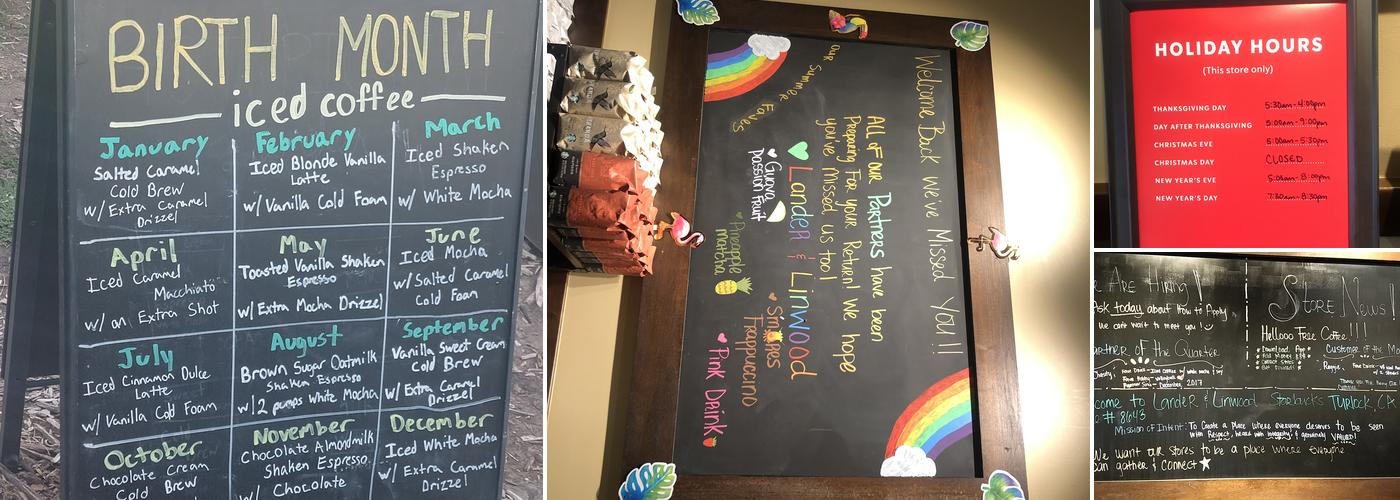 BIRTH MONTH
iced coffee
January
Salted Caramel
Cold Brew
w/ Extra Caramel
Drizzel
February
Iced Blonde Vanilla
Latte
w/ Vanilla Cold Foam
March
Iced Shaken
Espresso
w/ White Mocha
April
Iced Caramel
Macchiato
w/ an Extra Shot
May
Toasted Vanilla Shaken
Espresso
w/ Extra Mocha Drizzel
June
Iced Mocha
w/ Salted Caramel
Cold Foam
July
Iced Cinnamon Dulce
Latte
w/ Vanilla Cold Foam
August
Brown Sugar Oatmilk
Shaken Espresso
w/ 2 pumps White Mocha
September
Vanilla Sweet Cream
Cold Brew
w/ Extra Caramel
Drizzel
October
Chocolate Cream
Cold Brew
November
Chocolate Almondmilk
Shaken Espresso
w/ Chocolate
December
Iced White Mocha
w/ Extra Caramel
Drizzel
Welcome Back We've Missed You!!
All of our Partners have been
Preparing For your Return! We hope
you've Missed us too!
Lander & Linwood
Our Summer Faves
Guava Passion Fruit
Pineapple matcha
S'mores Frappuccino
Pink Drink
HOLIDAY HOURS
(This store only)
THANKSGIVING DAY 5:30am-4:00pm
DAY AFTER THANKSGIVING 5:00am-9:00pm
CHRISTMAS EVE 5:00am-5:30pm
CHRISTMAS DAY CLOSED
NEW YEAR'S EVE 5:00am-8:00pm
NEW YEAR'S DAY 7:30am-8:30pm
Are Hiring!
Ask today about how to Apply
we can't wait to meet you!
Partner of the Quarter
2017
Store News!
Hellooo Free Coffee!!!
Customer of the
come to Lander & Linwood Starbucks Turlock, CA
# 8643
Mission of Intent: To Create a place where everyone deserves to be seen
with Respect, heard with Integrity, & genuinely VALUED!
We want our Stores to be a place where Everyone
can gather & Connect